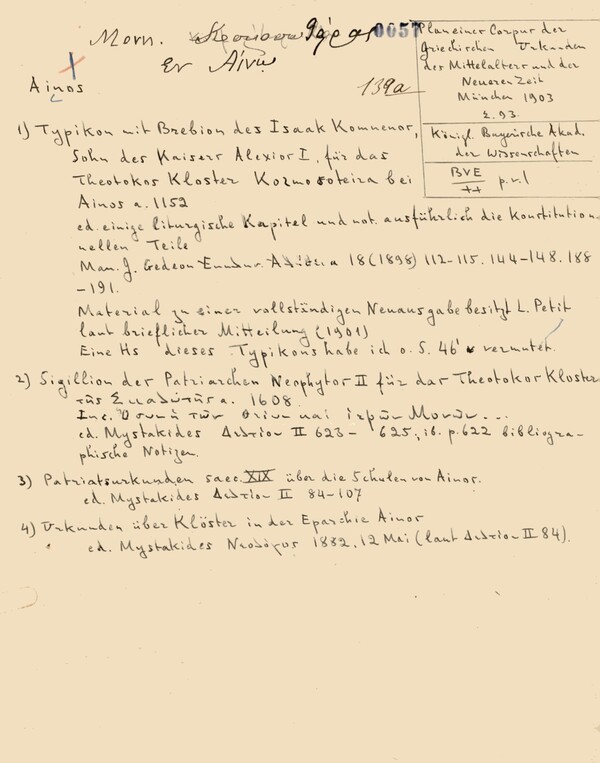 Μονη
0057
εν Αίνω
139a
Ainos
Plan einer Corpus der
griechischen Urkunden
des Mittelalters und der
Neueren Zeit
München 1903
s. 93.
Königl. Bayerische Akad.
der Wissenschaften
BVE
++ p. v. 1
1) Typikon mit Brebion des Isaak Komnenos,
Sohn des Kaisers Alexios I, für das
Theotokos Kloster Kozmosoteira bei
Ainos a. 1152
ed. einige liturgische Kapitel und not. ausführlich die Konstitution
nellen Teile
Man. J. Gedeon Εκκλησ. Αλήθεια 18 (1898) 112-115. 144-148. 188
-191.
Material zu einer vollständigen Neuausgabe besitzt L. Petit
laut brieflicher Mitteilung (1901)
Eine Hs dieses Typikons habe ich o. S. 46 vermutet.
2) Sigillion des Patriarchen Neophytos II für das Theotokos Kloster
της Σκαλωτής a. 1608.
Inc. Όσον των θείων και ιερών Μονών...
ed. Mystakides Δελτίον II 623- 625, ib. p. 622 bibliogra-
phische Notizen.
3) Patriatsurkunden saec. XIX über die Schulen von Ainos.
ed. Mystakides Δελτίον II 84-107
4) Urkunden über Klöster in der Eparchie Ainos
ed. Mystakides Νεολόγος 1882, 12 Mai (laut Δελτίον II 84).